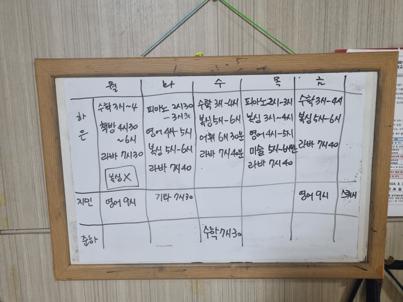 월 화 수 목 금
하은
수학 3시~4
책방 4시30
~6시
라바 7시30
복싱X
피아노 2시30
~3시
영어 4시~5시
복싱 5시~6시
라바 7시40
수학 3시~4시
복싱 5시~6시
어휘 6시30분
라바 7시40분
피아노 2시~3시
복싱 3시~4시
영어 4시~5시
미술 5시~6시
라바 7시40
수학 3시~4시
복싱 5시~6시
라바 7시40
지민
영어 9시
기타 7시30
영어 9시
준하
수학 7시30